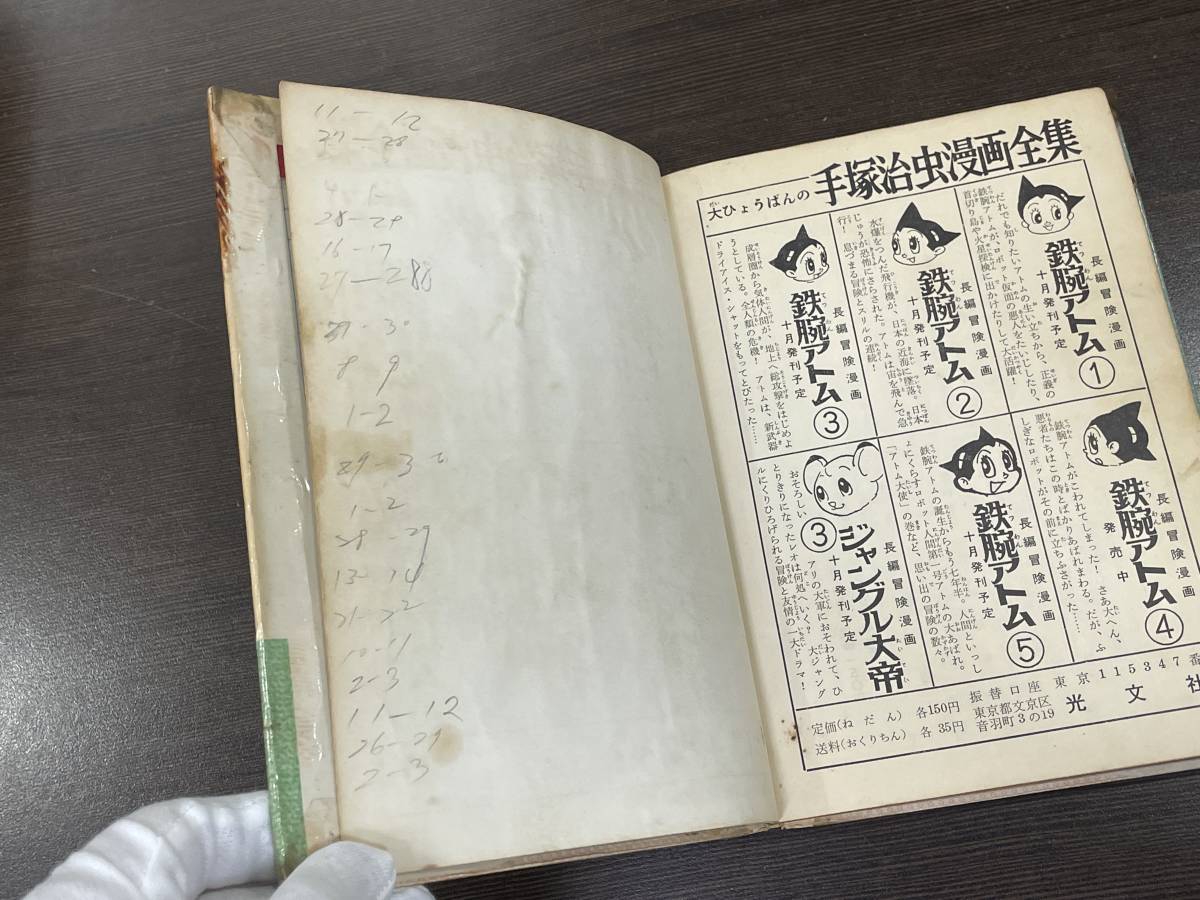 11 — 12
28-29
16-17
8 9
1-2
1-2
13-14
10-11
2-3
11—12
2-3
大ひょうばんの手塚治虫漫画全集
長編冒険漫画
鉄腕アトム①
十月発刊予定
だれでも知りたいアトムの生い立ちから、正義の
鉄腕アトムが、ロボット仮面の悪人をたいじしたり、
首切り島や火星探検に出かけたりして大活躍！
長編冒険漫画
鉄腕アトム②
十月発刊予定
水爆をつんだ飛行機が、日本の近海に墜落。日本
じゅうが恐怖にさらされた。アトムは宙を飛んで急
行！息づまる冒険とスリルの連続！
長編冒険漫画
鉄腕アトム③
十月発刊予定
成層圏から気体人間が、地上へ総攻撃をはじめよ
うとしている。全人類の危機！アトムは、新武器
ドライアイス・シャットをもってとびたった……
長編冒険漫画
鉄腕アトム④
発売中
鉄腕アトムがこわれてしまった！さあ大へん、
悪者たちはこの時とばかりあばれまわる。だが、ふ
しぎなロボットがその前に立ちふさがった……
長編冒険漫画
鉄腕アトム⑤
十月発刊予定
鉄腕アトムの誕生からもう七年半。人間といっし
ょにくらすロボット人間第一号アトムの大あばれ。
「アトム大使」の巻など、思い出の冒険の数々。
長編冒険漫画
ジャングル大帝③
十月発刊予定
おそろしいアリの大軍におそわれて、ひ
とりきりになったレオは何処へいく？大ジャング
ルにくりひろげられる冒険と友情の一大ドラマ！
定価(ねだん) 各150円 振替口座 東京115347番
送料(おくりちん) 各35円 東京都文京区音羽町3の19 光文社